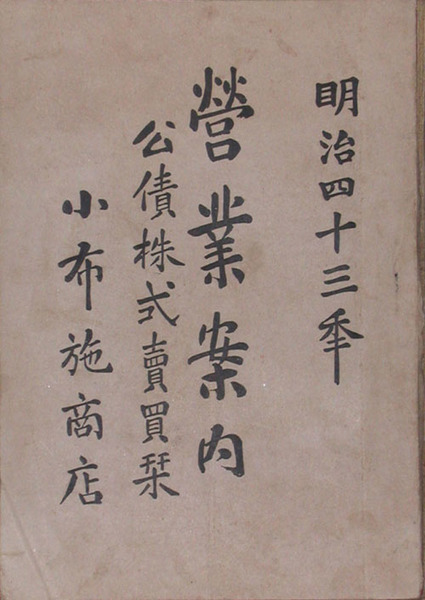 明治四十三秊
營業案内
公債株式賣買栞
小布施商店